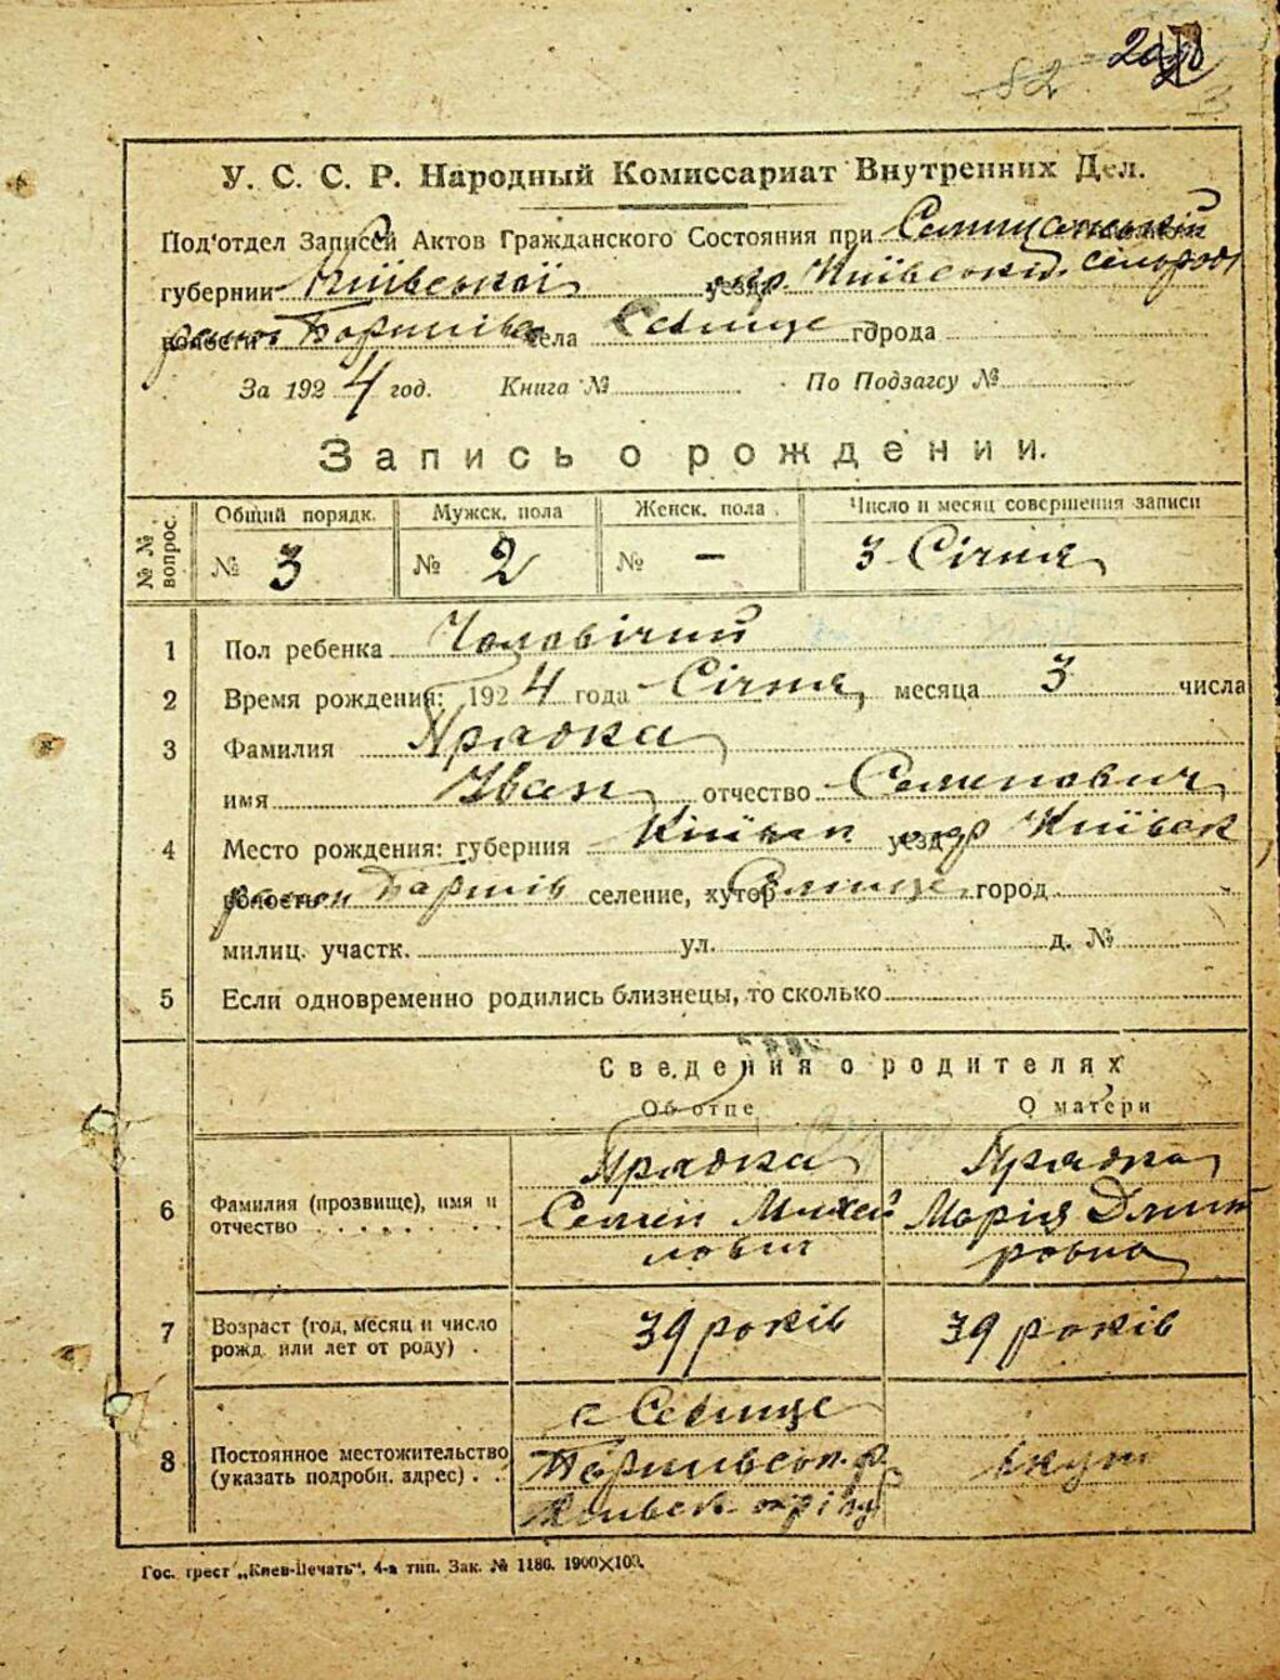 82
У. С. С. Р. Народный Комиссариат Внутренних Дел.
Под'отдел Записей Актов Гражданского Состояния при
губернии Київської уезда окр. Київськ. сільраді
волости район Боришів села Селище города
За 1924 год. Книга № По Подзагсу №
Запись о рождении.
№ № вопрос. Общий порядк. Мужск. пола Женск. пола Число и месяц совершения записи
№ 3 № 2 № — 3 Січня
1 Пол ребенка Чоловічий
2 Время рождения: 1924 года Січня месяца 3 числа
3 Фамилия Прядка
имя Иван отчество Семенович
4 Место рождения: губерния Київськ уезд окр Київськ
волость район Боришів селение, хутор Селище город
милиц. участк. ул. д. №
5 Если одновременно родились близнецы, то сколько
Сведения о родителях
Об отце О матери
6 Фамилия (прозвище), имя и отчество Прядка Прядка
Семен Михай Марія Дмит
лович ровна
7 Возраст (год, месяц и число рожд. или лет от роду) 39 років 39 років
8 Постоянное местожительство (указать подробн. адрес)
с Селище
Боришівськ. р.
окріги
Гос. трест „Киев-Печать“, 4-я тип. Зак. № 1186. 1900×100.